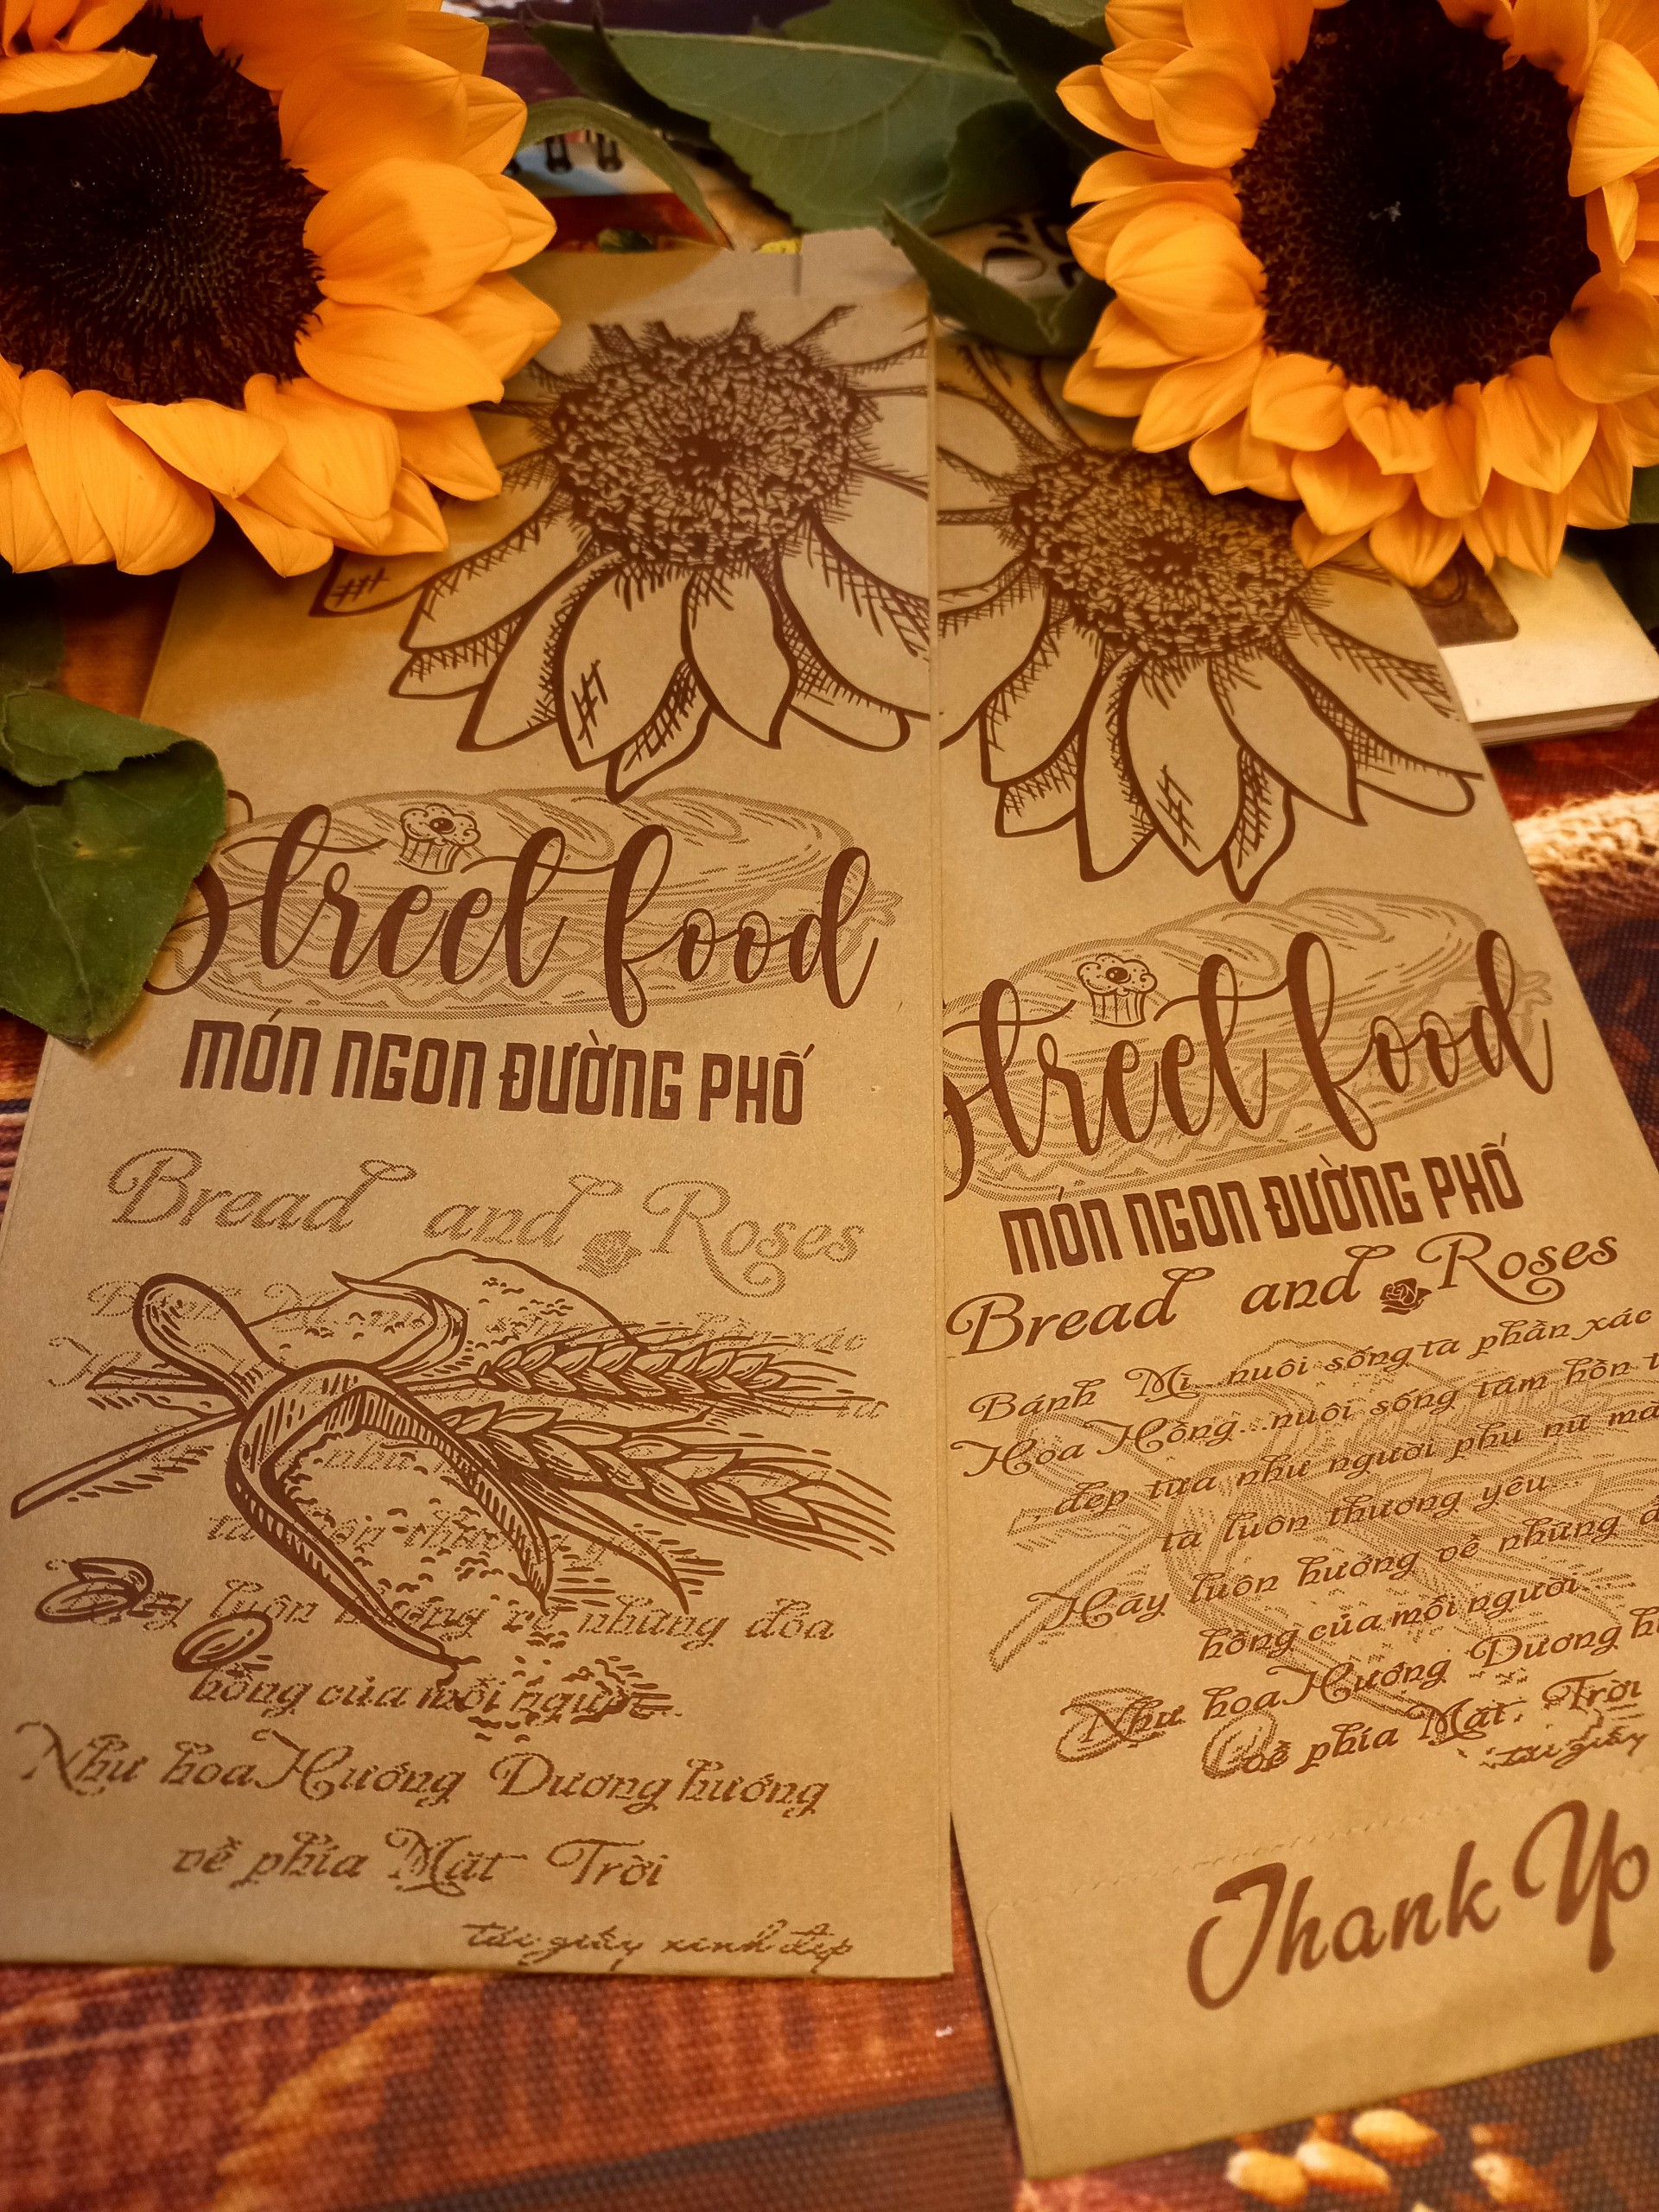 Street food
MÓN NGON ĐƯỜNG PHỐ
Bread and Roses
luôn hướng về những đóa
hồng của mỗi người...
Như hoa Hướng Dương hướng
về phía Mặt Trời
túi giấy xinh đẹp
Street food
MÓN NGON ĐƯỜNG PHỐ
Bread and Roses
Bánh Mì...nuôi sống ta phần xác
Hoa Hồng...nuôi sống tâm hồn
, đẹp tựa như người phụ nữ mà
ta luôn thương yêu...
Hãy luôn hướng về những
hồng của mỗi người...
Như hoa Hướng Dương
về phía Mặt Trời
túi giấy
Thank Yo